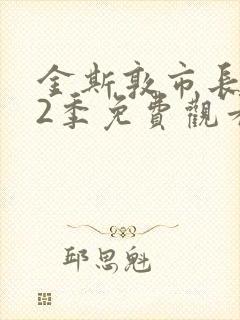 金斯敦市長
2季免費觀看
邱思魁